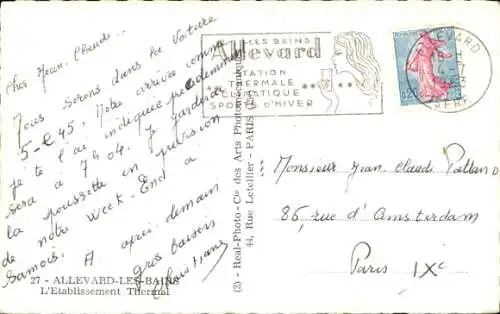 Cher Jean-Claude...
Nous serons dans la voiture
5-E 45. Notre arrivée comme
je te l'ai indiquée précédemment
sera à 7h04. Je garderai
la poussette en prévision
de notre Week-End à
Samois. A après-demain
gros baisers
Christiane
27 - ALLEVARD-LES-BAINS
L'Etablissement Thermal
(2) - Real-Photo - Cie des Arts Photomécaniques
44, Rue Letellier - PARIS
LES BAINS
Allevard
STATION
THERMALE
CLIMATIQUE
SPORTS D'HIVER
ALLEVARD
ISERE
Monsieur Jean-Claude
86, rue d'Amsterdam
Paris IXe